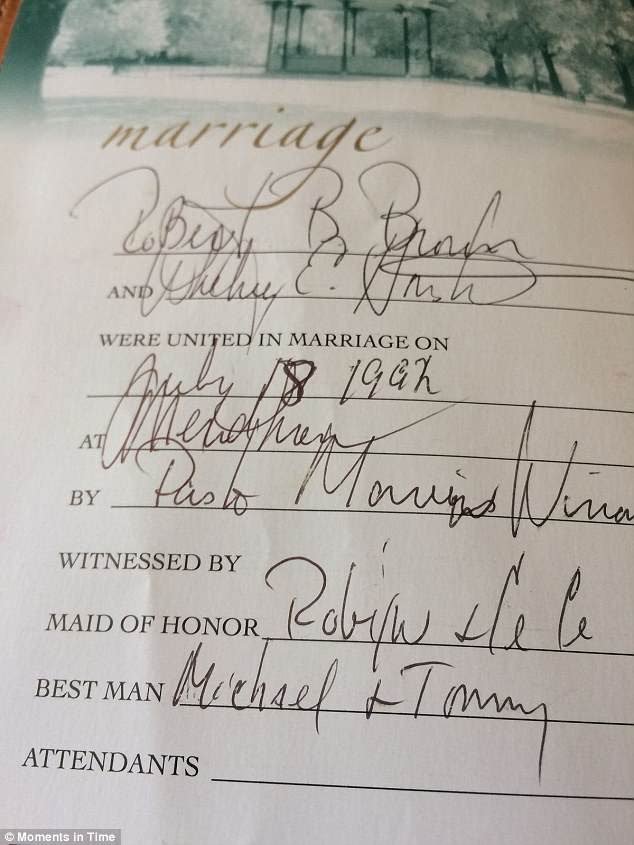 marriage
RoBert B. Brown
AND Whitney E.
WERE UNITED IN MARRIAGE ON
July 18 1992
AT Mendham
BY Marvin
WITNESSED BY
MAID OF HONOR Robyn & Ce Ce
BEST MAN Michael & Tommy
ATTENDANTS
© Moments in Time